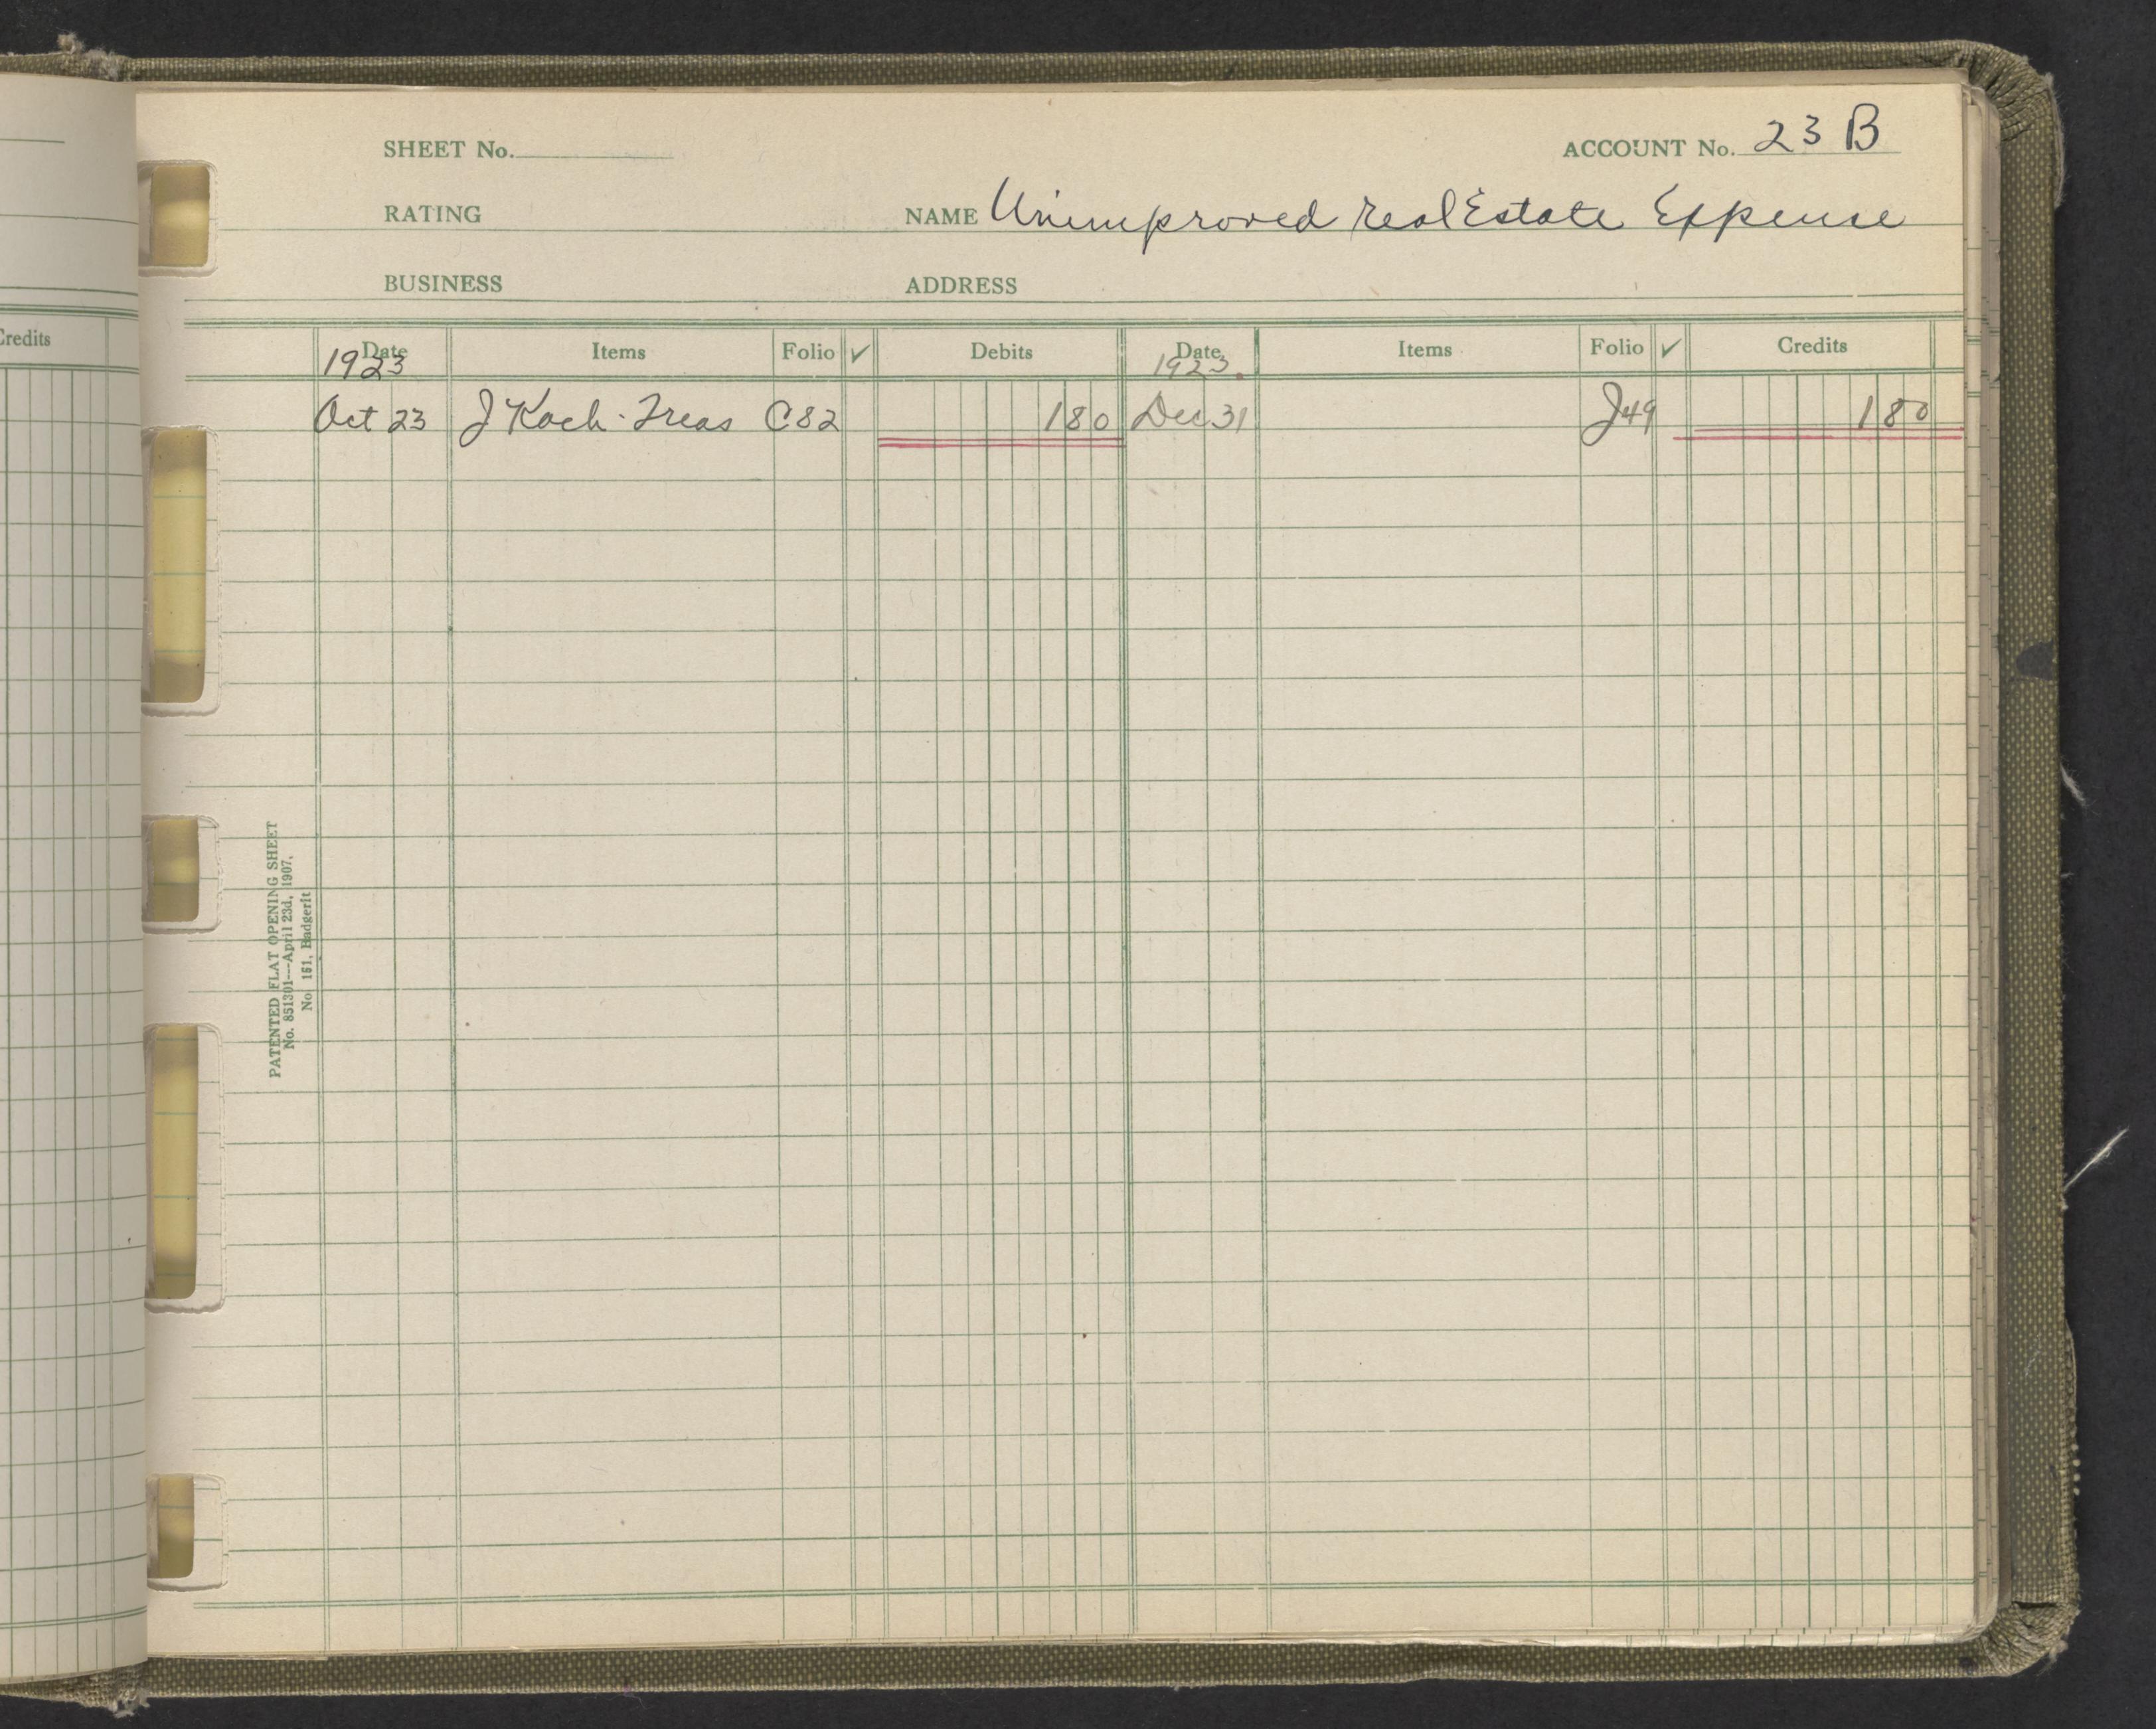 Credits
SHEET No. ACCOUNT No. 23 B
RATING NAME Unimproved real Estate Expense
BUSINESS ADDRESS
Date Items Folio ✓ Debits Date Items Folio ✓ Credits
1923 1923.
Oct 23 J Koch - Treas C82 180 Dec 31 J49 180
PATENTED FLAT OPENING SHEET
No. 851301---April 23d, 1907.
No. 151, Badgerit